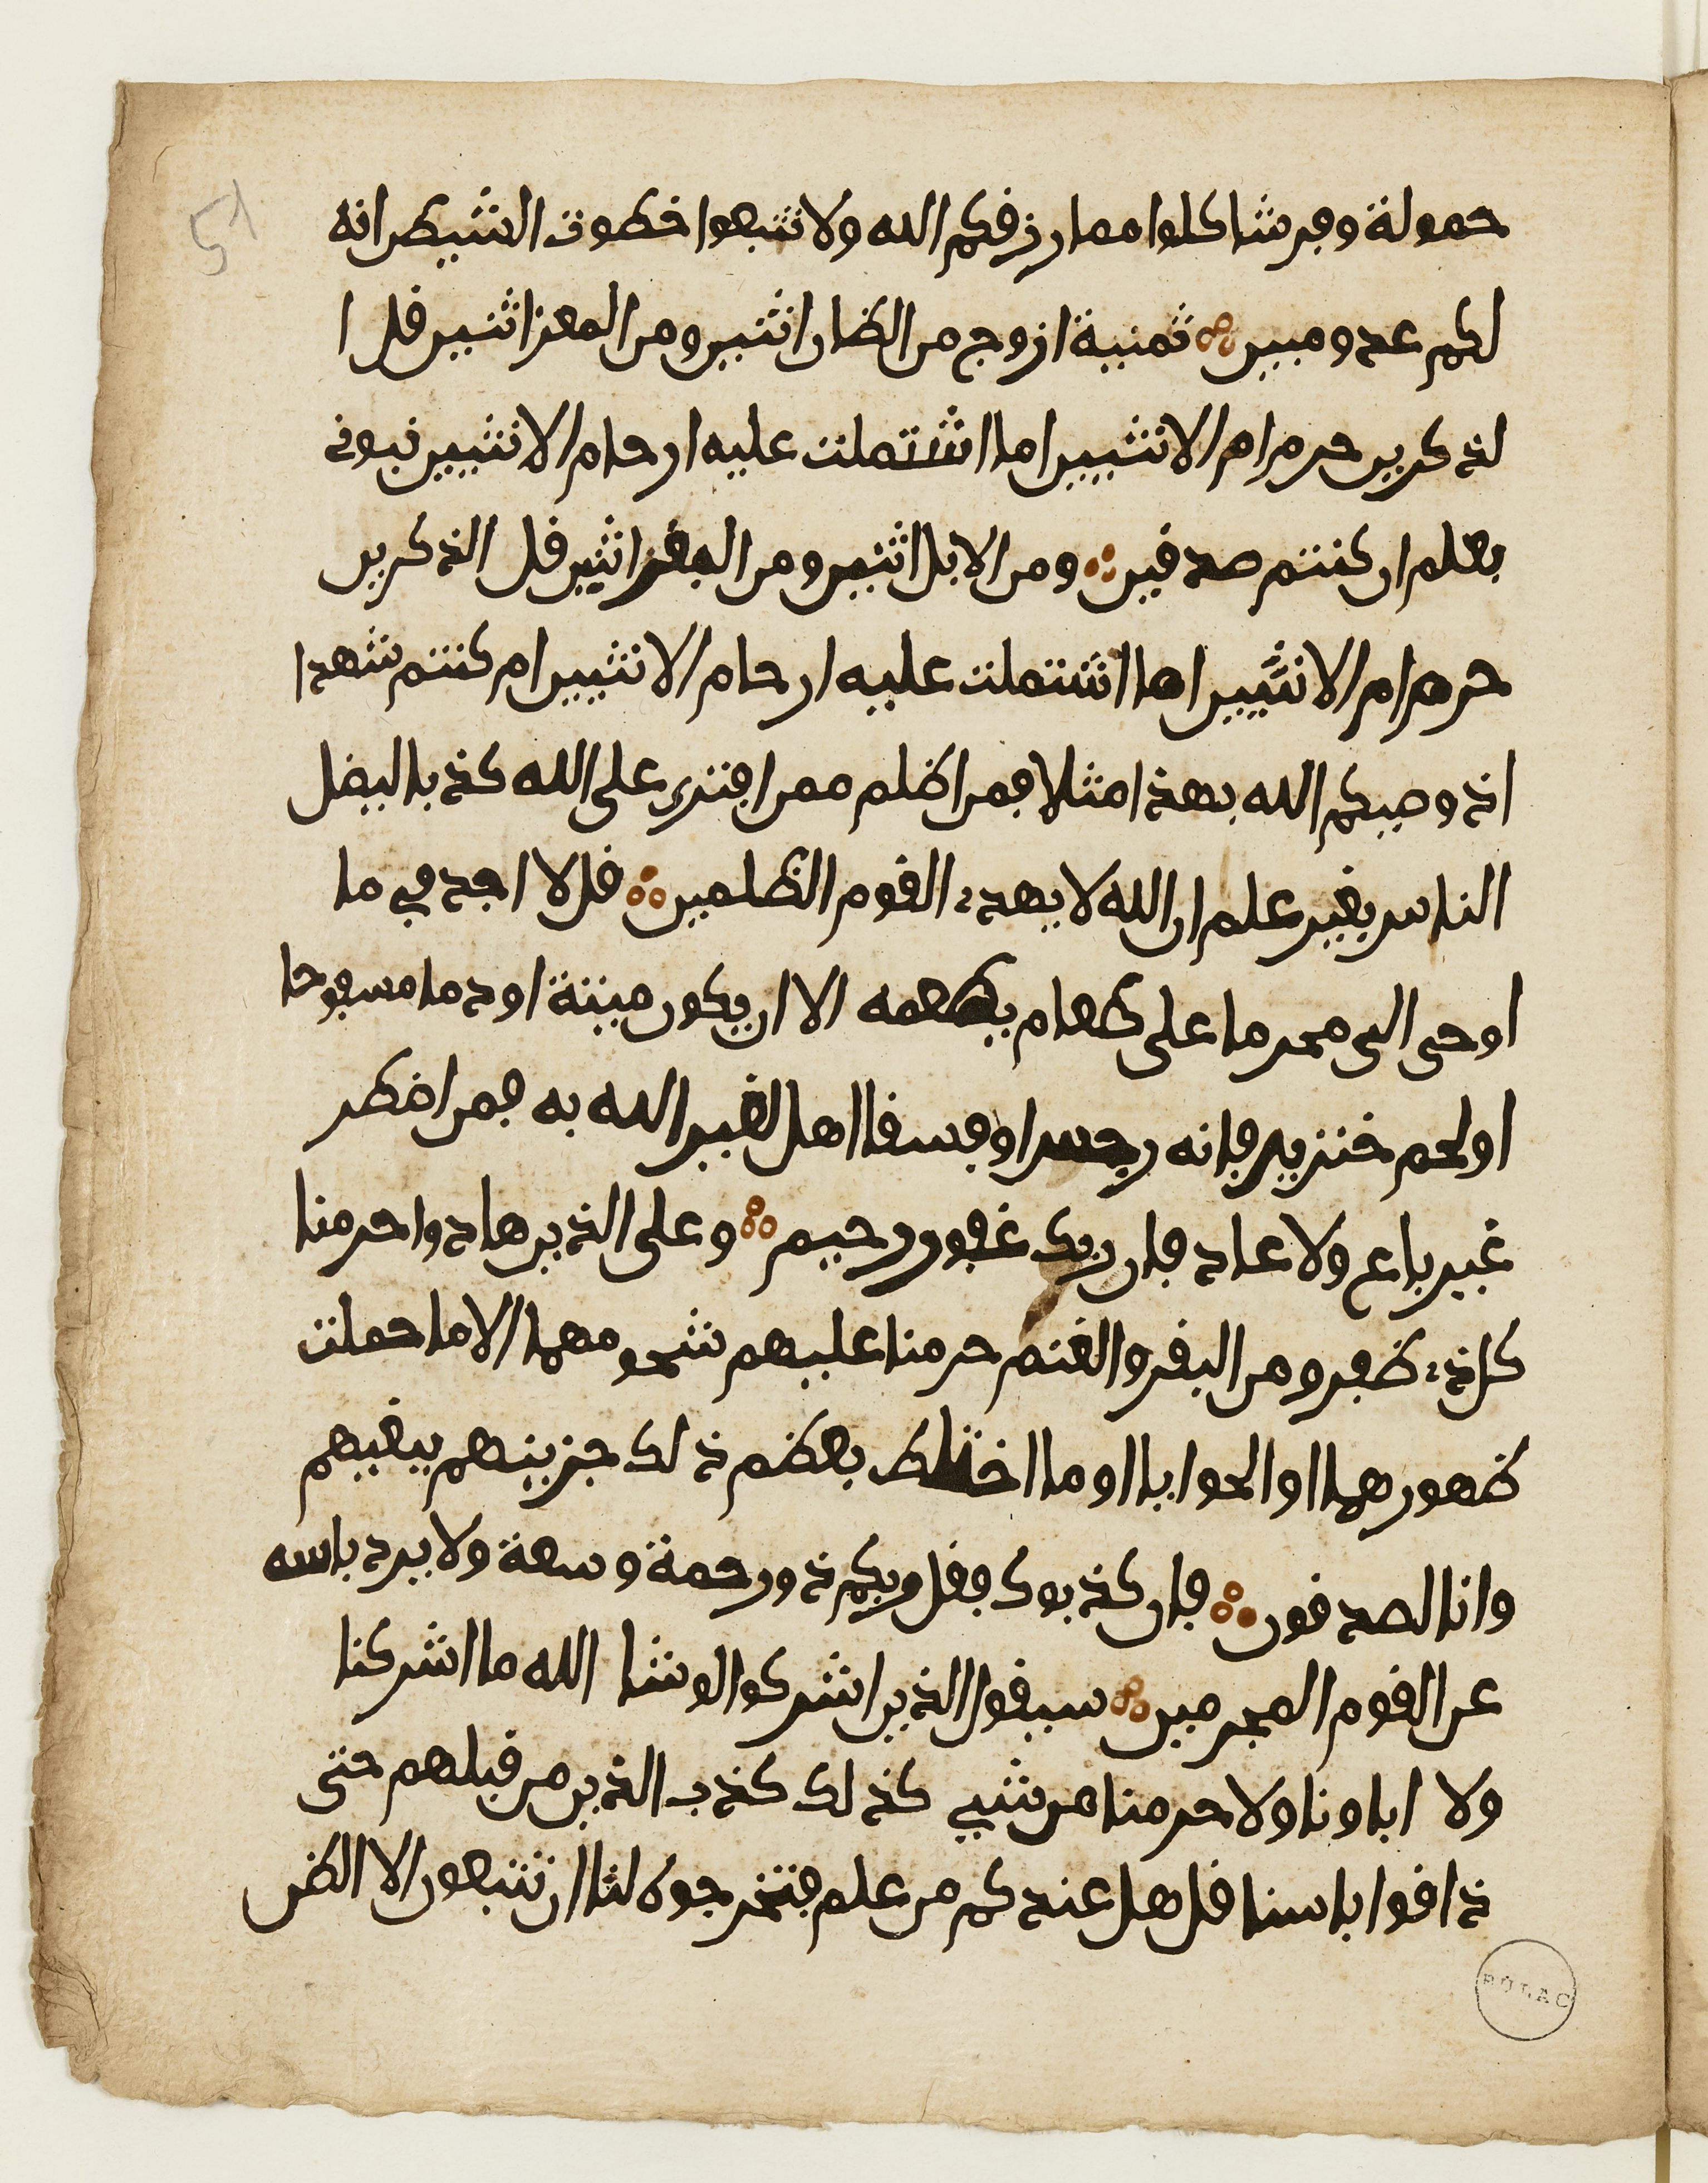 51
حمولة وفرشا كلوا مما رزفكم الله ولا تتبعوا خطوت الشيطن انه
لكم عدو مبين ثمنية ازوج من الضان اثنين ومن المعز اثنين فل ا
لذكرين حرم ام الانثيين اما اشتملت عليه ارحام الانثيين نبونى
بعلم ان كنتم صدفين ومن الابل اثنين ومن البفر اثنين فل الذكرين
حرم ام الانثيين اما اشتملت عليه ارحام الانثيين ام كنتم شهدا
اذ وصيكم الله بهذا مثلا فمن اظلم ممن افترى على الله كذبا ليضل
الناس بغير علم ان الله لا يهدے الفوم الظلمين فل لا اجد في ما
اوحى الى محرما على طعام يطعمه الا ان يكون ميتة او دما مسفوحا
او لحم خنزير فانه رجس او فسفا اهل لغير الله به فمن اضطر
غير باغ ولا عاد فان ربك غفور رحيم وعلى الذين هادوا حرمنا
كل ذے ظفر ومن البفر والغنم حرمنا عليهم شحومهما الا ما حملت
ظهورهما او الحوايا او ما اختلط بعظم ذلك جزينهم ببغيهم
وانا لصدفون فان كذبوك ففل ربكم ذو رحمة وسعة ولا يرد باسه
عن الفوم المجرمين سيفول الذين اشركوا لو شا الله ما اشركنا
ولا اباونا ولا حرمنا من شيي كذلك كذب الذين من فبلهم حتى
ذافوا باسنا فل هل عندكم من علم فتخرجوه لنا ان تتبعون الا الظن
BULAC